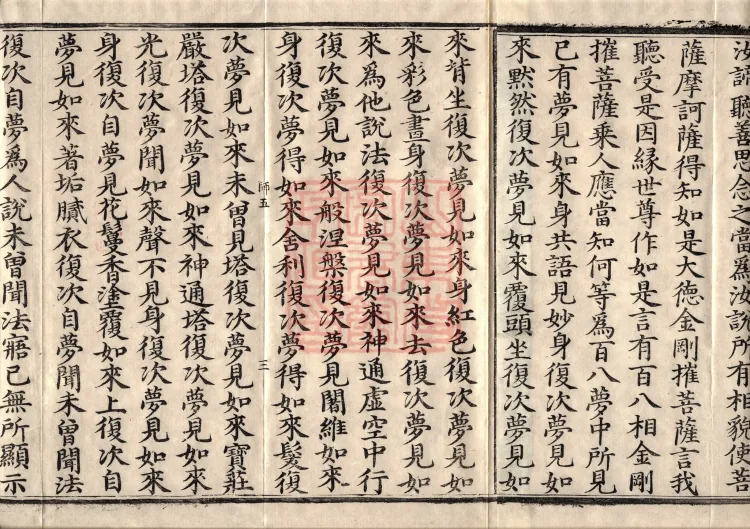 汝諦聽善思念之當爲汝說所有相貌使菩
薩摩訶薩得知如是大德金剛摧菩薩言我
聽受是因縁世尊作如是言有百八相金剛
摧菩薩乘人應當知何等爲百八夢中所見
已有夢見如來身共語見妙身復次夢見如
來黙然復次夢見如來覆頭坐復次夢見如
來背坐復次夢見如來身紅色復次夢見如
來彩色畫身復次夢見如來去復次夢見如
來爲他說法復次夢見如來神通虛空中行
復次夢見如來般涅槃復次夢見闍維如來
身復次夢得如來舍利復次夢得如來髮復
師五 三
次夢見如來未曾見塔復次夢見如來寶莊
嚴塔復次夢見如來神通塔復次夢見如來
光復次夢聞如來聲不見身復次夢見如來
身復次自夢見花鬘香塗覆如來上復次自
夢見如來著垢膩衣復次自夢聞未曾聞法
復次自夢爲人說未曾聞法寤已無所顯示